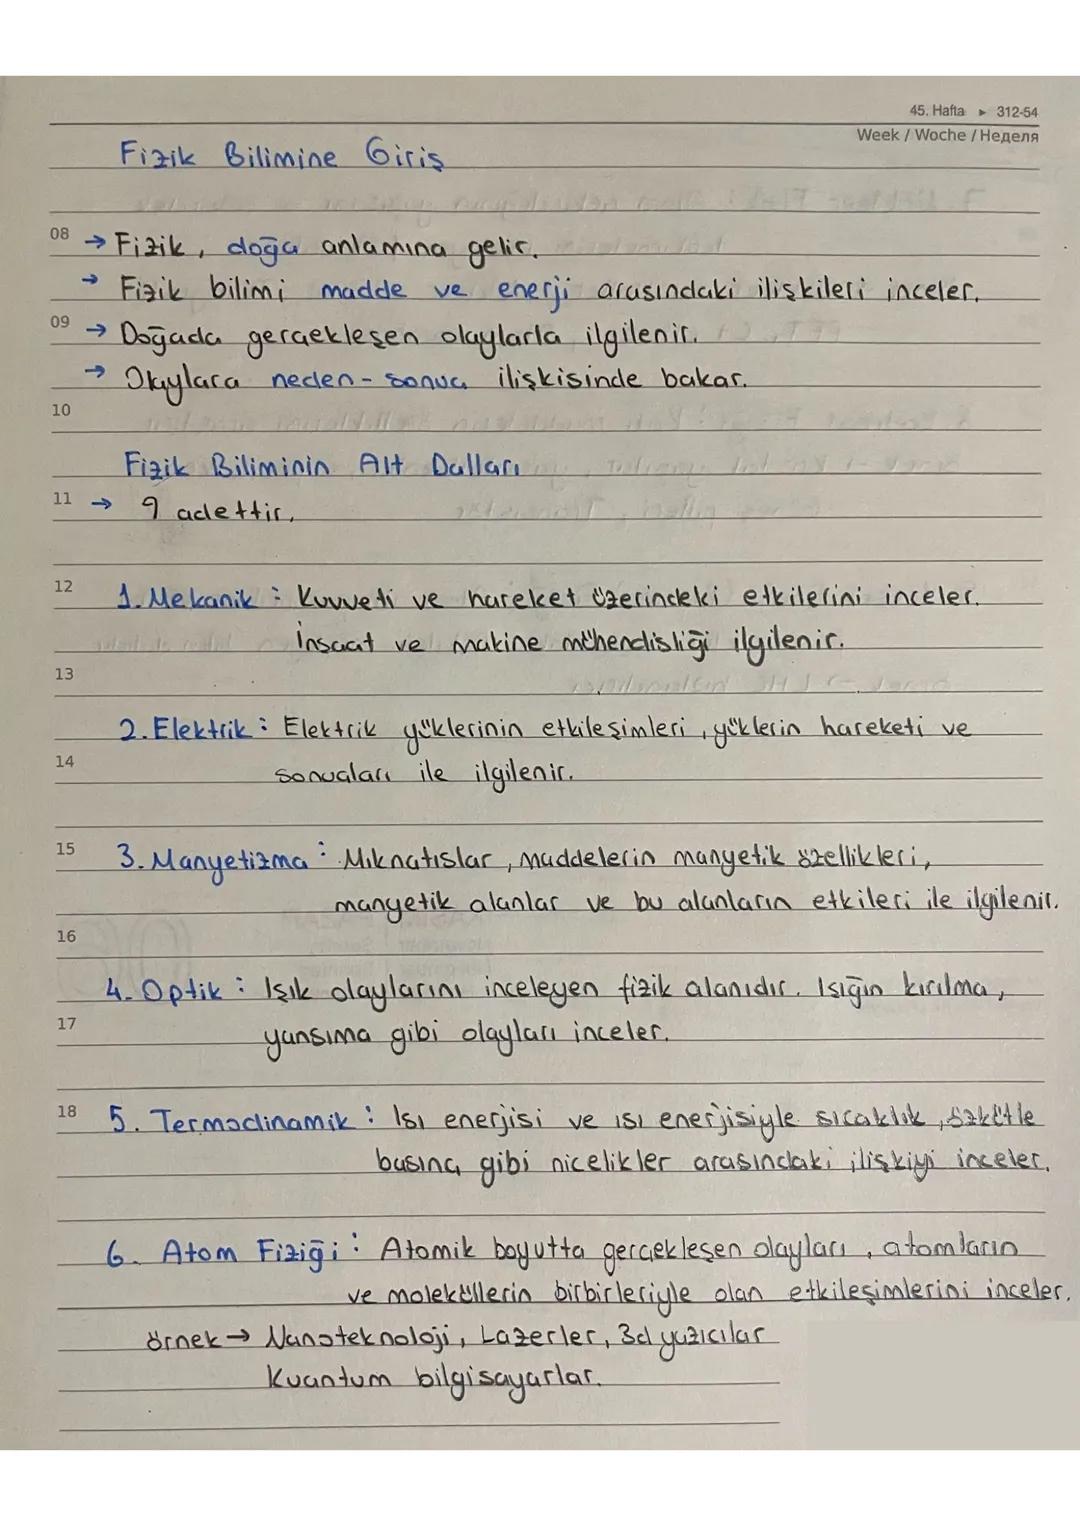 45. Hafta ▸ 312-54
Week / Woche / Неделя
Fizik Bilimine Giriş
08 → Fizik, doğa anlamına gelir.
→ Fizik bilimi madde ve enerji arasındaki ilişkileri inceler.
09 → Doğada gerçekleşen olaylarla ilgilenir.
→ Olaylara neden-sonuç ilişkisinde bakar.
10
Fizik Biliminin Alt Dalları
11 → 9 adettir.
12 1. Mekanik : Kuvveti ve hareket üzerindeki etkilerini inceler.
İnşaat ve makine mühendisliği ilgilenir.
13
2. Elektrik : Elektrik yüklerinin etkileşimleri, yüklerin hareketi ve
14 sonuçları ile ilgilenir.
15 3. Manyetizma : Mıknatıslar, maddelerin manyetik özellikleri,
manyetik alanlar ve bu alanların etkileri ile ilgilenir.
16
4. Optik : Işık olaylarını inceleyen fizik alanıdır. Işığın kırılma,
17 yansıma gibi olayları inceler.
18 5. Termodinamik : Isı enerjisi ve ısı enerjisiyle sıcaklık, özkütle
basınç gibi nicelikler arasındaki ilişkiyi inceler.
6. Atom Fiziği : Atomik boyutta gerçekleşen olayları, atomların
ve moleküllerin birbirleriyle olan etkileşimlerini inceler.
örnek → Nanoteknoloji, Lazerler, 3d yazıcılar
Kuantum bilgisayarlar.